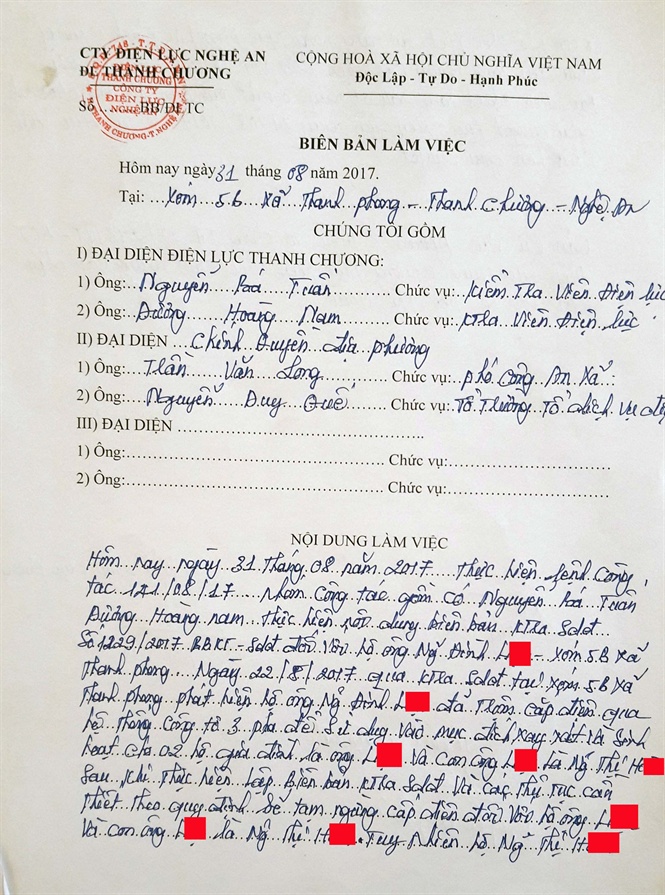 CTY ĐIỆN LỰC NGHỆ AN
ĐL THANH CHƯƠNG
Số.........BB/ĐLTC
CỘNG HOÀ XÃ HỘI CHỦ NGHĨA VIỆT NAM
Độc Lập - Tự Do - Hạnh Phúc
THANH CHƯƠNG
CÔNG TY
ĐIỆN LỰC
NGHỆ AN
BIÊN BẢN LÀM VIỆC
Hôm nay ngày 31 tháng 08 năm 2017.
Tại: ...Xóm 5.B Xã Thanh phong - Thanh Chương - Nghệ An
CHÚNG TÔI GỒM
I) ĐẠI DIỆN ĐIỆN LỰC THANH CHƯƠNG:
1) Ông:...Nguyễn Bá Tuấn ......... Chức vụ:..Kiểm Tra Viên Điện lực
2) Ông:..Dương Hoàng Nam ......... Chức vụ:..KTra Viên Điện lực
II) ĐẠI DIỆN ...Chính Quyền địa phương
1) Ông:...Trần Văn Long ......... Chức vụ: phó Công An Xã
2) Ông:...Nguyễn Duy Quế ......... Chức vụ: Tổ Trưởng Tổ dịch vụ
III) ĐẠI DIỆN ....................................
1) Ông:.................................... Chức vụ:....................................
2) Ông:.................................... Chức vụ:....................................
NỘI DUNG LÀM VIỆC
Hôm nay ngày 31 Tháng 08 năm 2017 Thực hiện lệnh Công
tác 121/08/17 Nhóm Công tác gồm có Nguyễn Bá Tuấn
Dương Hoàng nam thực hiện nội dung biên bản KTra Sdđ
Số 1229/2017 BBKT - Sdđ đối với hộ ông Ng Đình L - Xóm 5.B Xã
Thanh phong. Ngày 22/8/2017 qua KTra Sdđ tại Xóm 5.B Xã
Thanh phong phát hiện hộ ông Ng Đình L đã Trộm cắp điện qua
hệ thống Công tơ 3 pha để sử dụng Vào mục đích xay xát Và Sinh
hoạt cho 02 hộ gia đình là ông L Và Con ông L là Ng Thị H
Sau khi Thực hiện lập Biên bản KTra Sdđ Và các Thủ Tục cần
Thiết Theo quy định để tạm ngừng cấp điện đối Với hộ ông L
Và con ông L là Ng Thị H. Tuy Nhiên hộ Ng Thị H